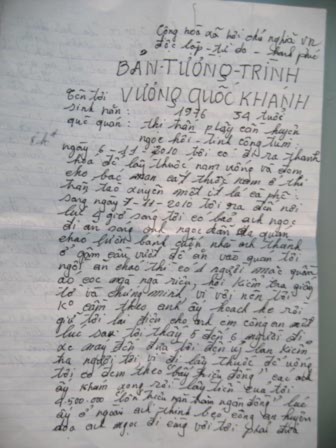 Cộng hòa xã hội chủ nghĩa VN
độc lập - tự do - hạnh phúc
BẢN TƯỜNG TRÌNH
Tên tôi VƯƠNG QUỐC KHÁNH
sinh năm: 1976 34 tuổi
quê quán: thị trấn huyện
ngọc hồi - tỉnh công tum
ngày 6-11-2010 tôi có đi ra thanh
hóa để lấy thuốc nam uống và đem
cho bác cắt thuốc nam ở thị
trấn tào xuyên một ít cà phê
sang ngày 7-11-2010 tôi ra đón
lúc 4 giờ sang tôi có bảo anh ngọc
đi ăn sang anh ngọc dẫn quán
cháo lươn bảnh điện nhà anh thanh
ở gầm cầu vượt để ăn vào quán tôi
ngồi ăn cháo thì có 1 người mặc quần
áo cọc mà ngà riêng, hỏi kiểm tra giấy
tờ và chứng minh vì vội nên tôi
ko cầm theo anh ấy hoạch hẹ rồi
giữ tôi lại điện cho anh em công an một
lúc sau tôi thấy 5 đến 6 người đi
xe máy đến đưa tôi
hạ người tôi vì đi lấy thuốc để uống
tôi có đem theo các anh
ấy khám xong rồi lấy tiền của tôi
4.500.000 bốn triệu năm trăm ngàn đồng lúc
ấy ở ngoài anh thinh bạc công an huyện
đưa anh ngọc đi cùng với tôi phải đưa